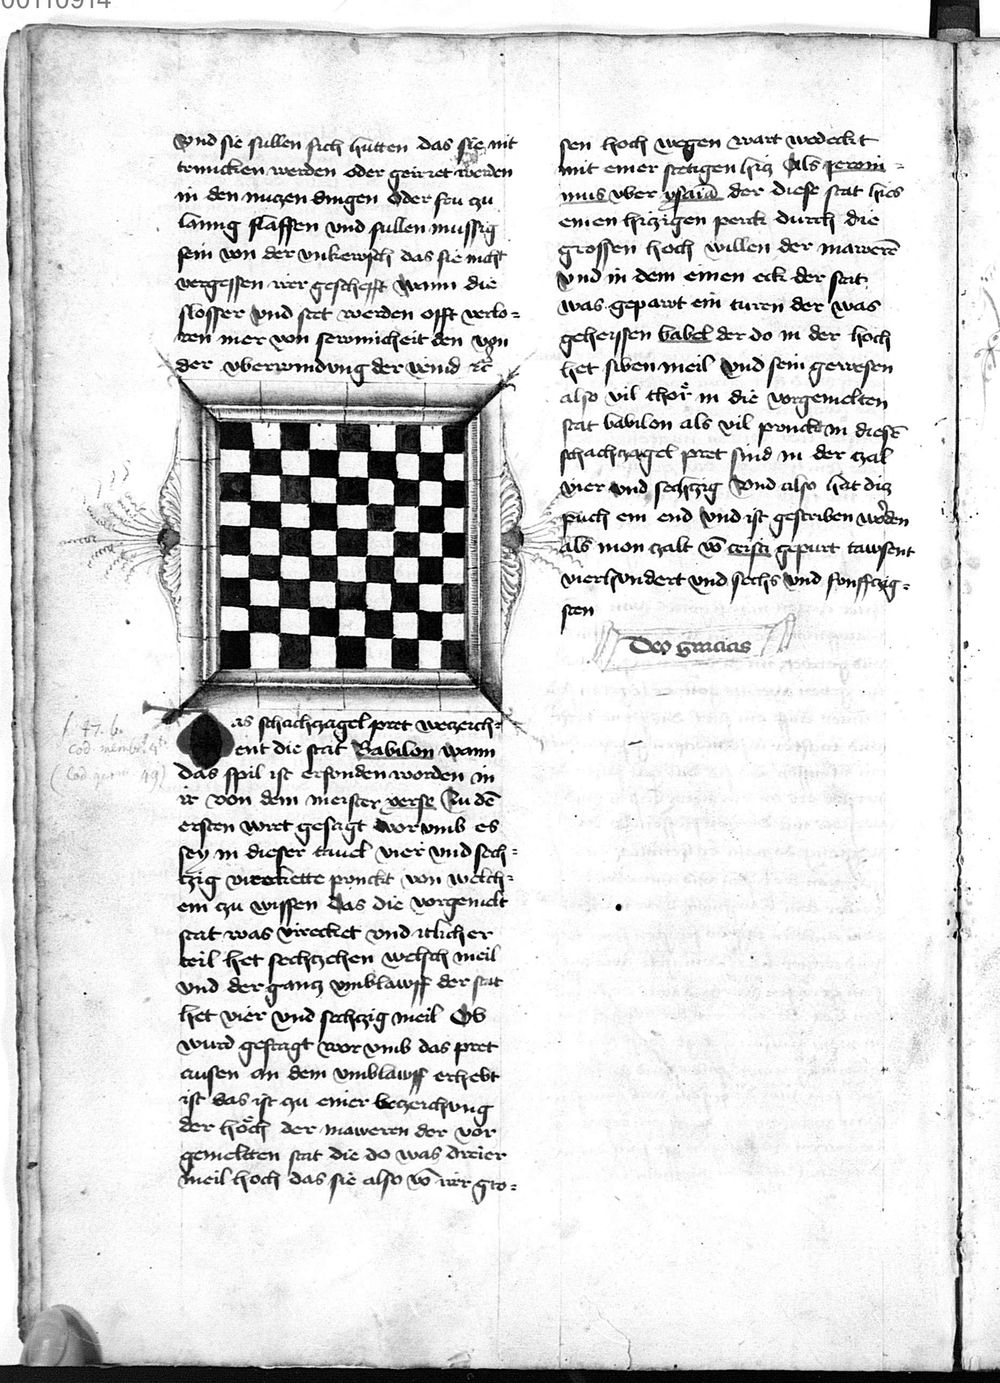 00110914
Vnd sie sullen sich hutten das sie nit
truncken werden oder geirret werden
in den nuczen dingen Oder stu zu
lanng slaffen vnd sullen mussig
sein von der vnkewsch das sie nicht
vergessen irer gescheft Wann die
slosser vnd stet werden offt verlo=
ren mer von sewmicheit den von
der vberwindung der veind rc
Das schachzagel pret wezeich=
ent die stat Babilon wann
das spil ist erfonden worden in
ir von dem meister xerse Zu dē
ersten wirt gefragt worvmb es
sey in dieser tauel vier vnd sech=
tzig virekette punckt von welch=
em zu wissen das die vorgemelt
stat was virecket vnd itlicher
teil het sechzehen welsch meil
vnd der gancz vmblawff der stat
het vier vnd sechzig meil Ob
wurd gefragt worvmb das pret
ausen an dem vmblawff erhebt
ist das ist zu einer bezeichung
der höch der maweren der vor
gemelten stat die do was dreier
meil hoch das sie also vō irer gro=
sen hoch wegen wart wedeckt
mit einer stetigen hiz Als Jeroni=
mus vber ysaiā der diese stat hies
einen hizigen perck durch die
grossen hoch willen der mawerē
vnd in dem einen eck der stat
was gepawt ein turen der was
geheissen babel der do in der hoch
het siben meil Vnd sein gewesen
also vil thor in die vorgemelten
stat babilon als vil punckt in diesē
schachzagel pret sind in der zal
vier vnd sechzig Vnd also hat diz
puch ein end vnd ist gescriben worden
als mon zalt vō cristi gepurt tawsent
vierhundert vnd sechs vnd funffczig=
sten
Deo gracias
f. 47. b.
Cod. membr. 4to
(Cod. germ. 49)